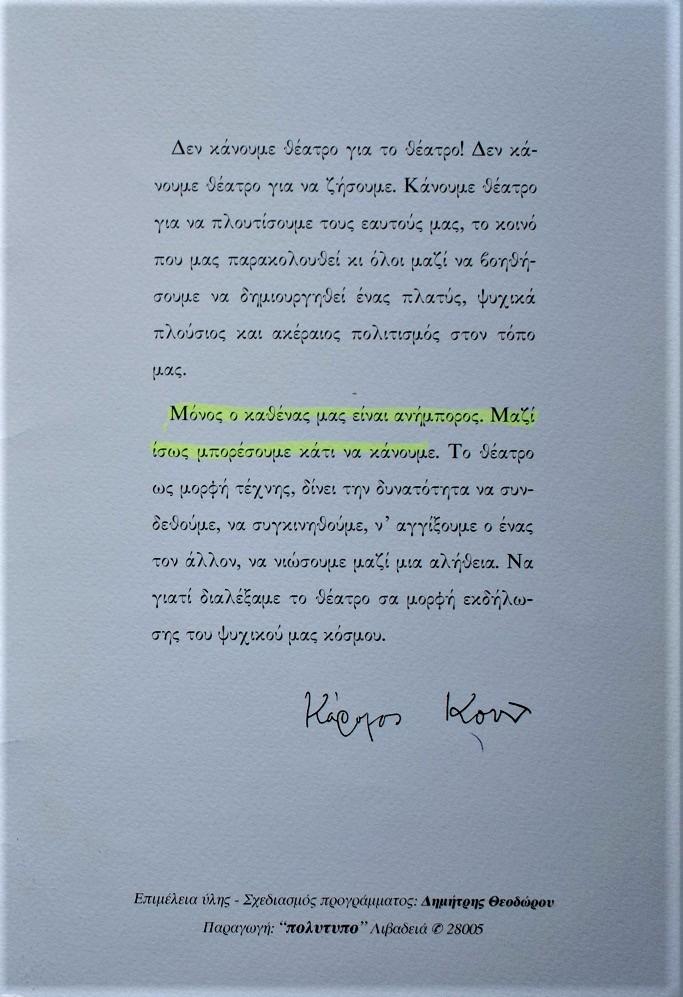 Δεν κάνουμε θέατρο για το θέατρο! Δεν κά-
νουμε θέατρο για να ζήσουμε. Κάνουμε θέατρο
για να πλουτίσουμε τους εαυτούς μας, το κοινό
που μας παρακολουθεί κι όλοι μαζί να βοηθή-
σουμε να δημιουργηθεί ένας πλατύς, ψυχικά
πλούσιος και ακέραιος πολιτισμός στον τόπο
μας.
Μόνος ο καθένας μας είναι ανήμπορος. Μαζί
ίσως μπορέσουμε κάτι να κάνουμε. Το θέατρο
ως μορφή τέχνης, δίνει την δυνατότητα να συν-
δεθούμε, να συγκινηθούμε, ν' αγγίξουμε ο ένας
τον άλλον, να νιώσουμε μαζί μια αλήθεια. Να
γιατί διαλέξαμε το θέατρο σα μορφή εκδήλω-
σης του ψυχικού μας κόσμου.
Κάρολος Κουν
Επιμέλεια ύλης - Σχεδιασμός προγράμματος: Δημήτρης Θεοδώρου
Παραγωγή: “πολυτυπο” Λιβαδειά ✆ 28005